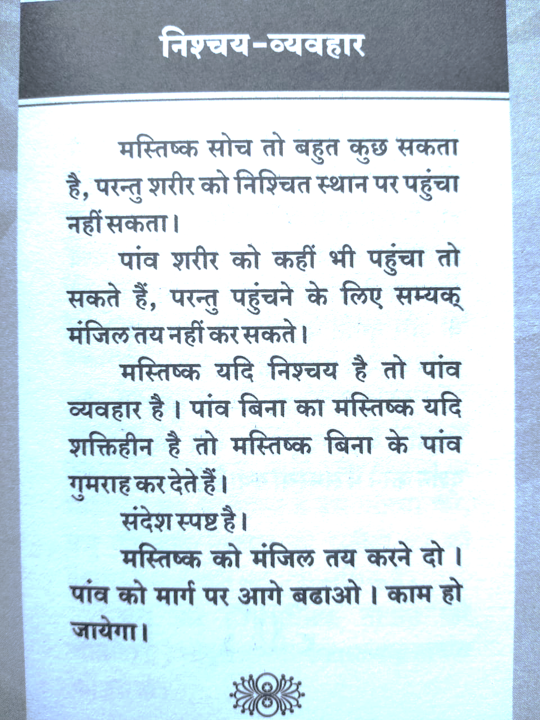 निश्चय-व्यवहार
मस्तिष्क सोच तो बहुत कुछ सकता
है, परन्तु शरीर को निश्चित स्थान पर पहुंचा
नहीं सकता।
पांव शरीर को कहीं भी पहुंचा तो
सकते हैं, परन्तु पहुंचने के लिए सम्यक्
मंजिल तय नहीं कर सकते।
मस्तिष्क यदि निश्चय है तो पांव
व्यवहार है । पांव बिना का मस्तिष्क यदि
शक्तिहीन है तो मस्तिष्क बिना के पांव
गुमराह कर देते हैं।
संदेश स्पष्ट है।
मस्तिष्क को मंजिल तय करने दो ।
पांव को मार्ग पर आगे बढाओ । काम हो
जायेगा।